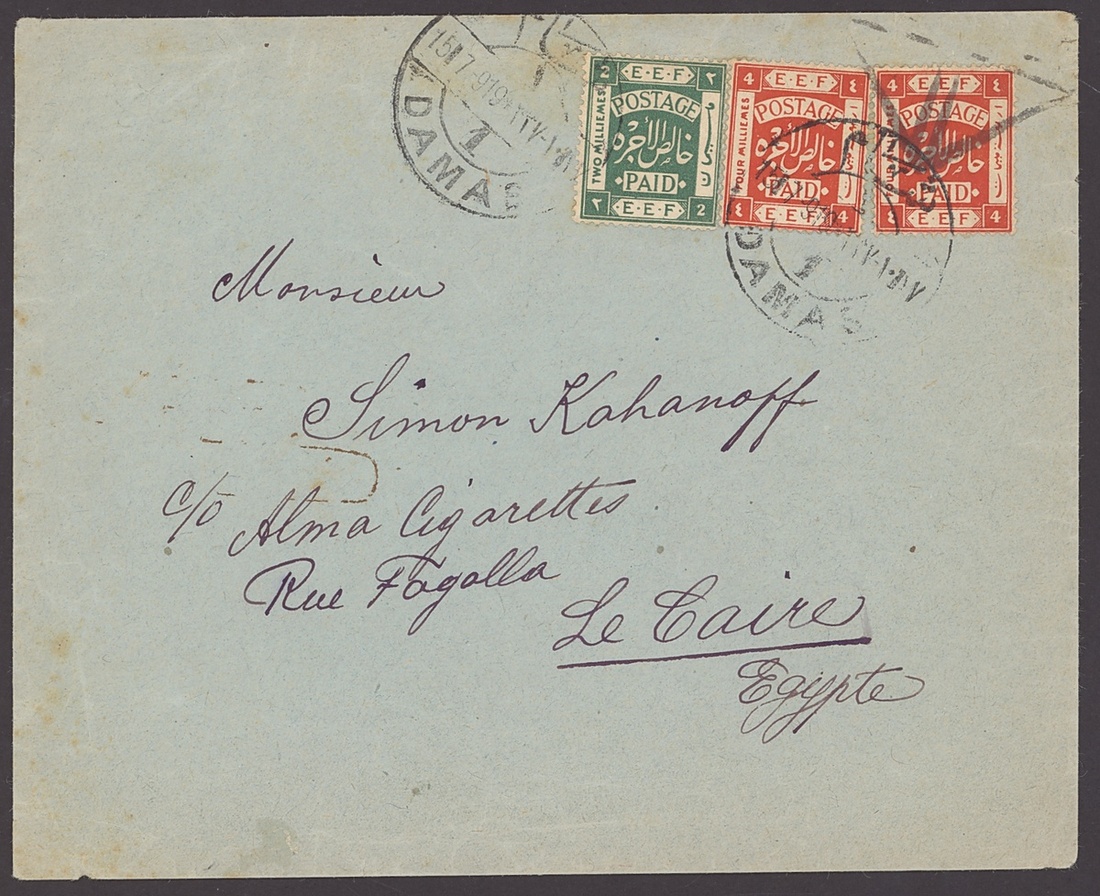 15 7-919
1
DAMAS
2 E·E·F ٢
POSTAGE
TWO MILLIEMES
خالص الأجرة
PAID
٢ E·E·F 2
4 E·E·F ٤
POSTAGE
FOUR MILLIEMES
خالص الأجرة
PAID
٤ E·E·F 4
4 E·E·F ٤
POSTAGE
خالص الأجرة
PAID
٤ E·E·F 4
1
DAMAS
Monsieur
Simon Kahanoff
c/o Alma Cigarettes
Rue Fagalla
Le Caire
Egypte